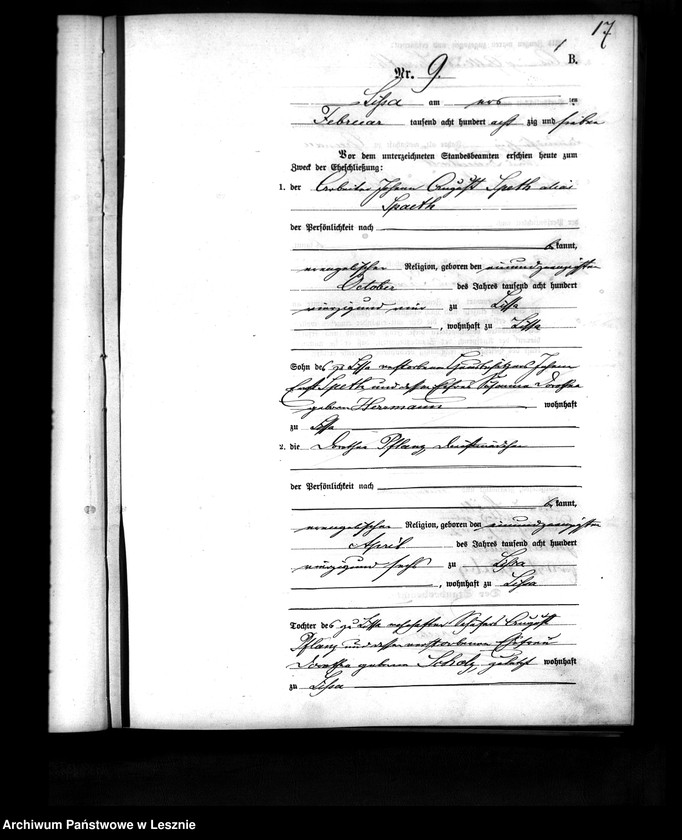 17
B.
Nr. 9.
Lissa am ers ten
Februar tausend acht hundert acht zig und sieben
Vor dem unterzeichneten Standesbeamten erschien heute zum
Zweck der Eheschließung:
1. der Arbeiter Johann August Speth alias
Spaeth
der Persönlichkeit nach
kannt,
evangelischer Religion, geboren den einundzwanzigsten
October des Jahres tausend acht hundert
vierzig und vier zu Lissa
, wohnhaft zu Lissa
Sohn des zu Lissa verstorbenen Johann
Speth und dessen Ehefrau Susanna Dorothea
geboren Herrmann wohnhaft
zu Lissa
2. die Dorothea Pflanz Dienstmädchen
der Persönlichkeit nach
kannt,
evangelischer Religion, geboren den einundzwanzigsten
April des Jahres tausend acht hundert
vierzig und sechs zu Lissa
, wohnhaft zu Lissa
Tochter des zu Lissa wohnhaften August
Pflanz und dessen verstorbenen Ehefrau
Dorothea geboren Scholz, zuletzt wohnhaft
zu Lissa
Archiwum Państwowe w Lesznie